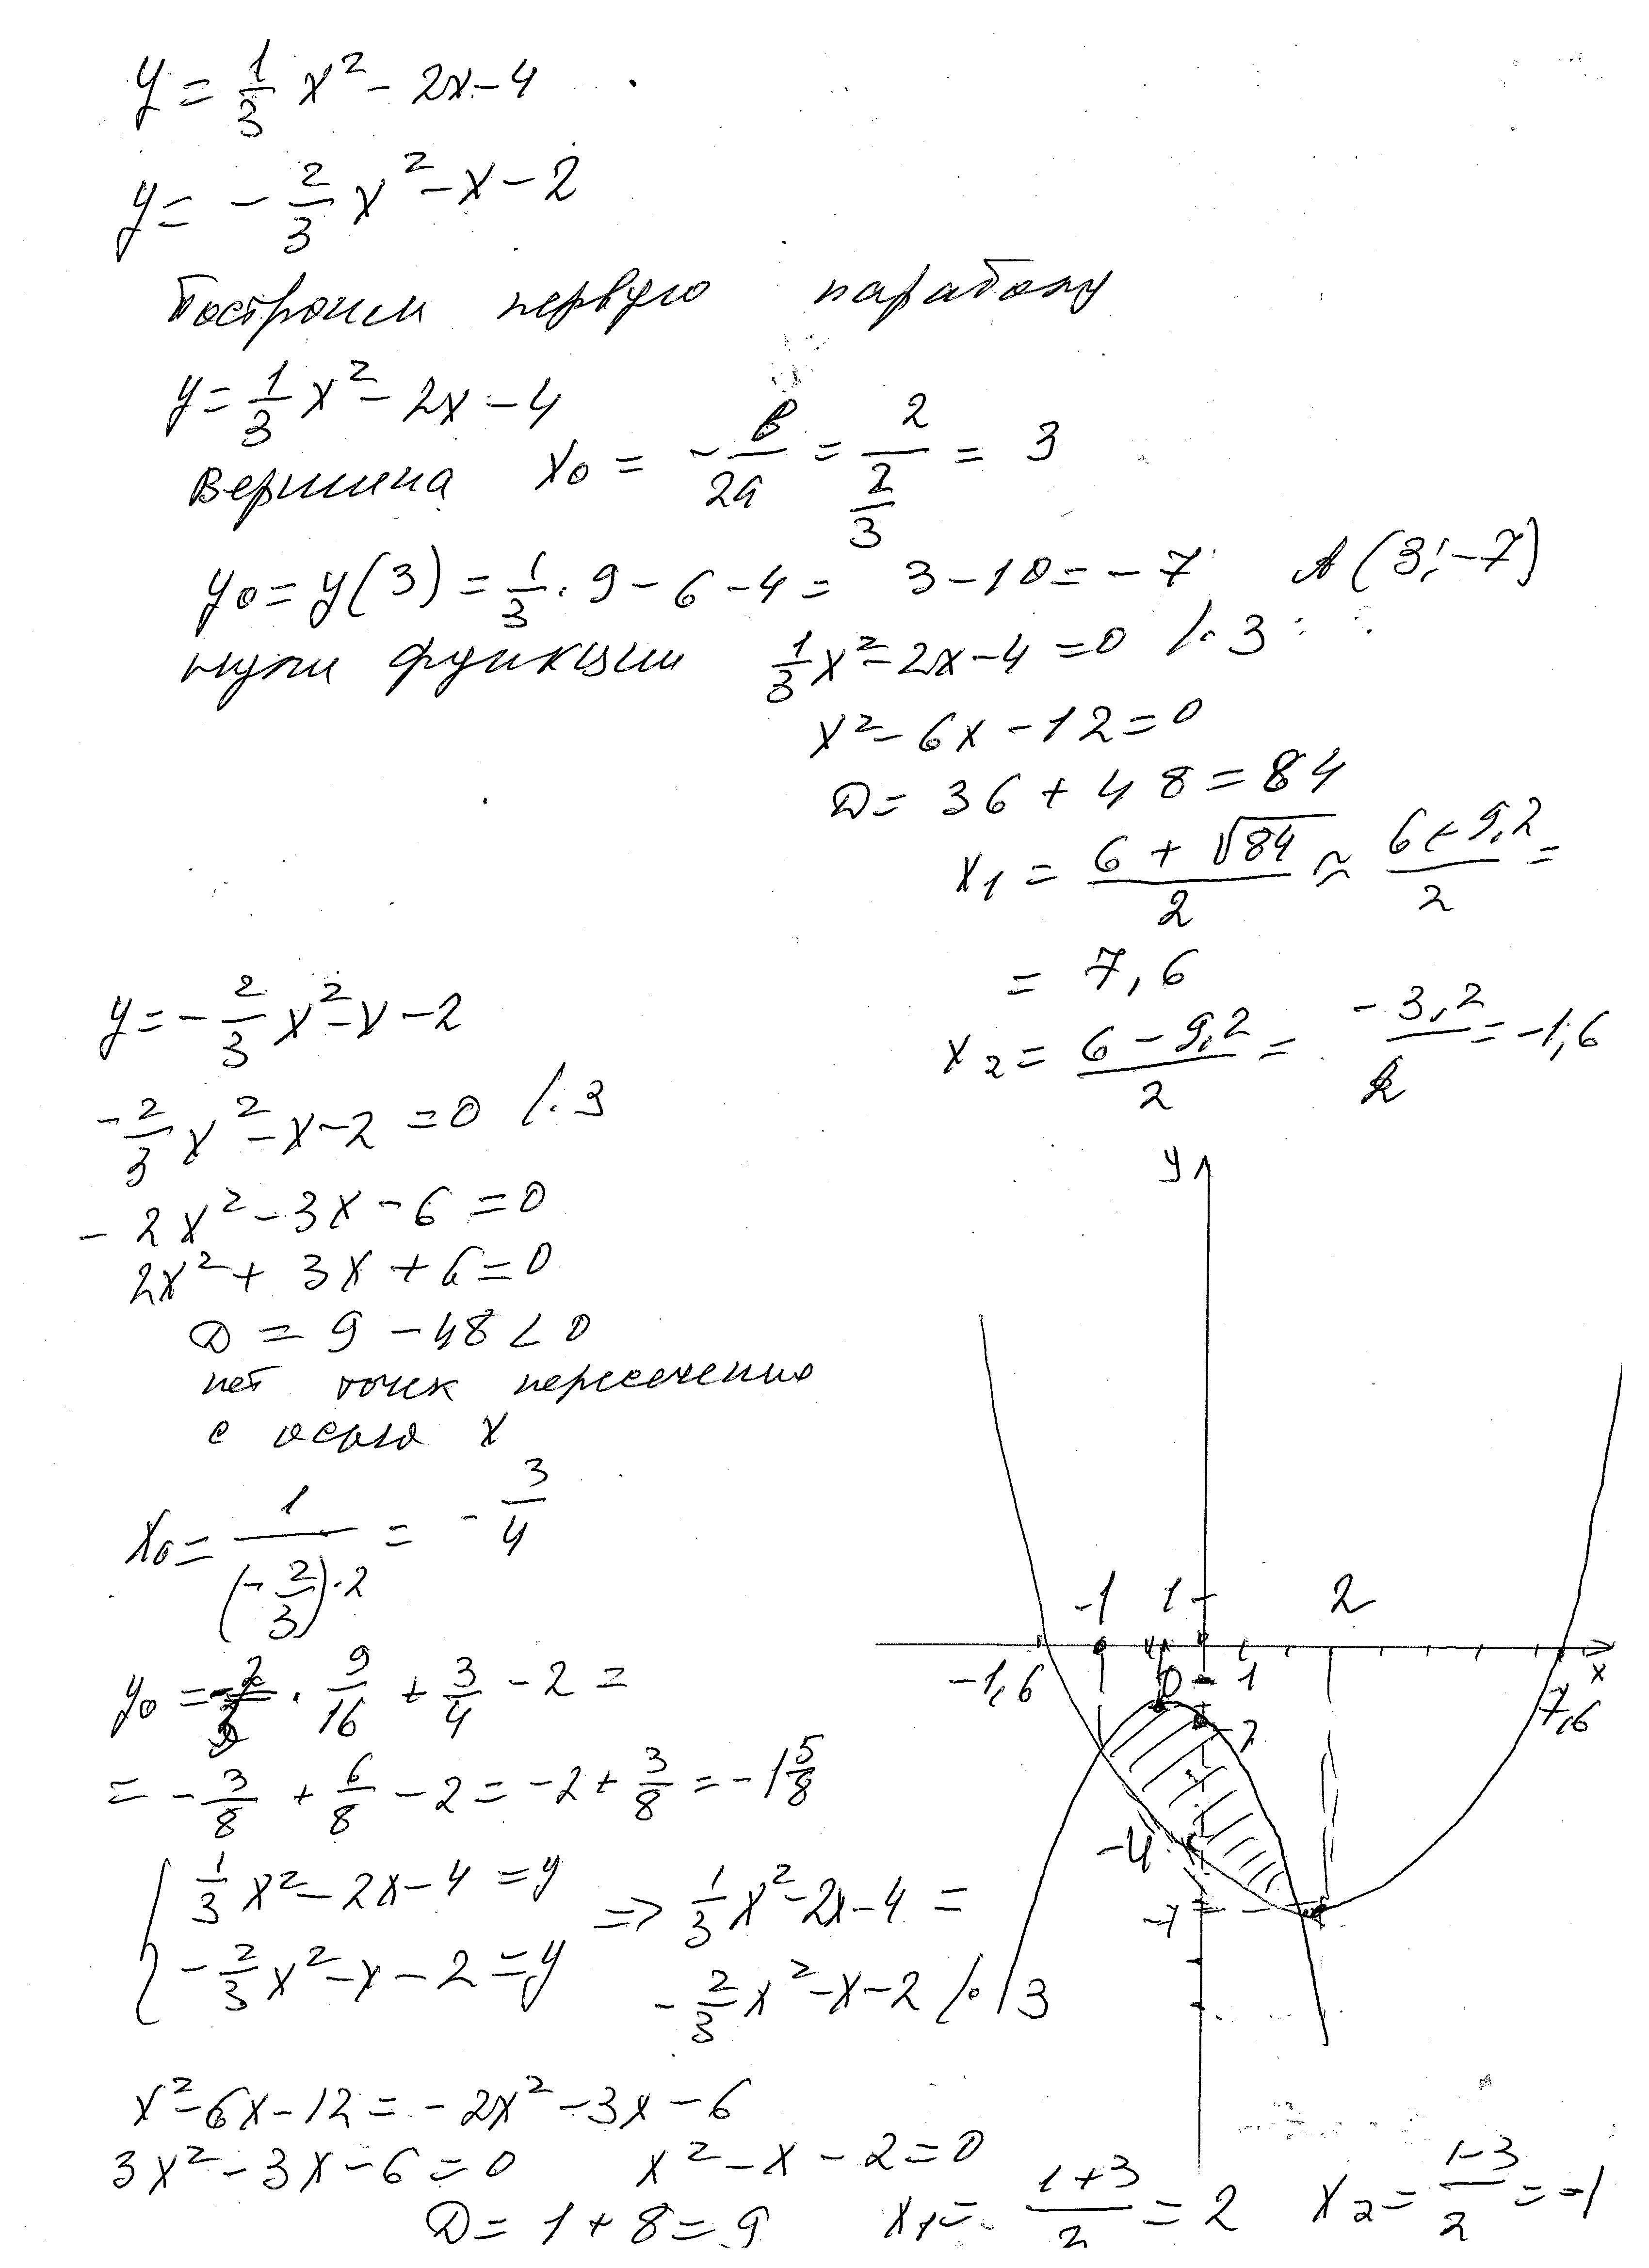 y = 1/3 x² - 2x - 4
y = - 2/3 x² - x - 2
Построим первую параболу
y = 1/3 x² - 2x - 4
Вершина x₀ = - в/2a = 2/(2/3) = 3
y₀ = y(3) = 1/3 · 9 - 6 - 4 = 3 - 10 = -7 A(3; -7)
нули функции 1/3 x² - 2x - 4 = 0 /· 3
x² - 6x - 12 = 0
D = 36 + 48 = 84
x₁ = (6 + √84)/2 ≈ (6 + 9,2)/2 =
= 7,6
x₂ = (6 - 9,2)/2 = -3,2/2 = -1,6
y = - 2/3 x² - x - 2
- 2/3 x² - x - 2 = 0 /· 3
- 2x² - 3x - 6 = 0
2x² + 3x + 6 = 0
D = 9 - 48 < 0
нет точек пересечения
с осью x
x₀ = 1/((- 2/3)·2) = - 3/4
y₀ = - 2/3 · 9/16 + 3/4 - 2 =
= - 3/8 + 6/8 - 2 = -2 + 3/8 = -1 5/8
{ 1/3 x² - 2x - 4 = y
- 2/3 x² - x - 2 = y
=> 1/3 x² - 2x - 4 =
- 2/3 x² - x - 2 /· 3
y
-1 1 2
-1,6 0 1 7,6 x
-2
-4
-7
x² - 6x - 12 = - 2x² - 3x - 6
3x² - 3x - 6 = 0 x² - x - 2 = 0
D = 1 + 8 = 9 x₁ = (1 + 3)/2 = 2 x₂ = (1 - 3)/2 = -1